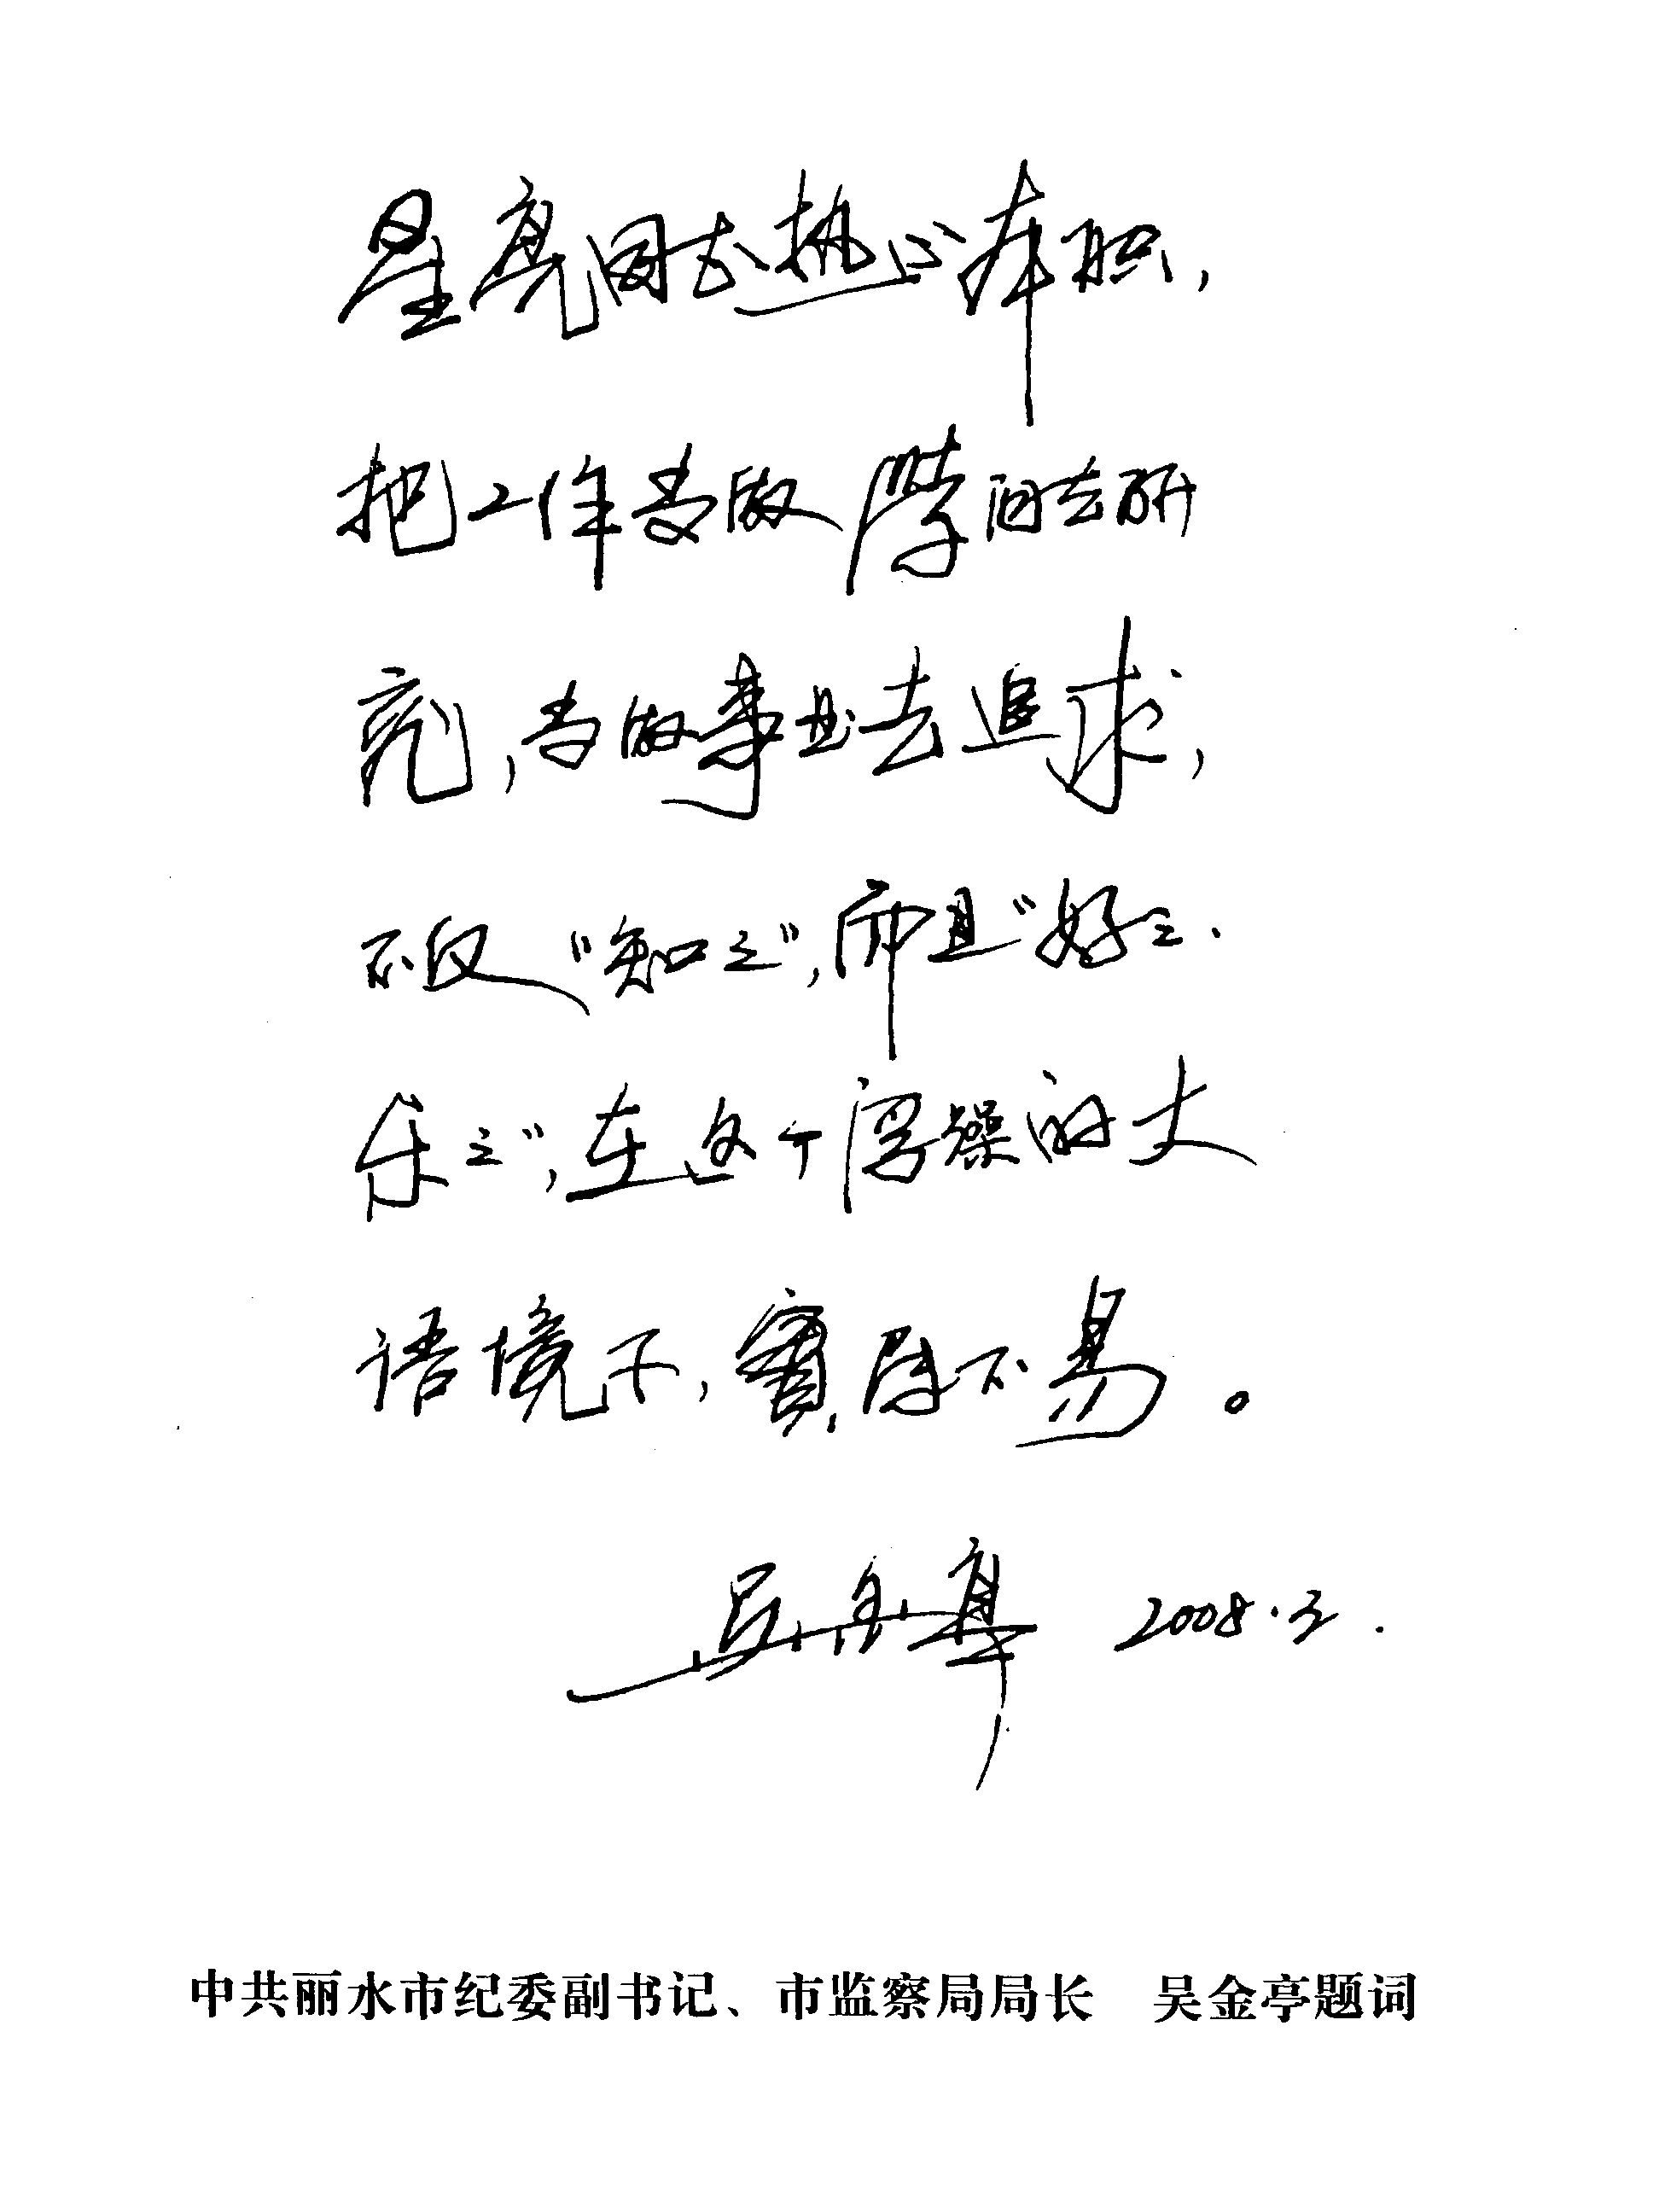 星亮同志热心本职，
把工作当做学问去研
究，当做事业去追求，
不仅“知之”，而且“好之、
乐之”，在这个浮躁的大
语境下，实属不易。
吴金亭 2008.3.
中共丽水市纪委副书记、市监察局局长 吴金亭题词